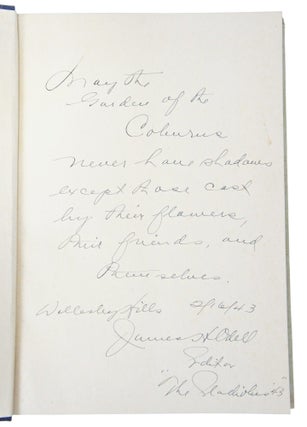 May the
Garden of the
Coburns
never have shadows
except those cast
by their flowers,
their friends, and
themselves.
Wellesley Hills 2/16/43
James H. Odell
Editor
"The Gladiolus" '43